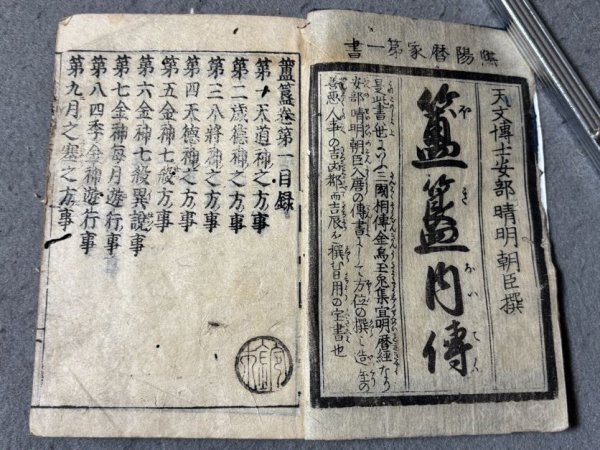 陰陽暦家第一書
天文博士安部晴明朝臣撰
簠簋内傳
此書ハ世にいふ三國相傳金烏玉兎集宣明暦経なり
安部晴明朝臣入唐の傳書にして方位の撰ミ造作の
善悪人事の吉凶都而吉辰を撰む日用の宝書也
簠簋巻第一目録
第一天道神之方事
第二歳徳神之方事
第三八將神之方事
第四天徳神之方事
第五金神七殺方事
第六金神七殺異説事
第七金神毎月遊行事
第八四季金神遊行事
第九月之塞之方事